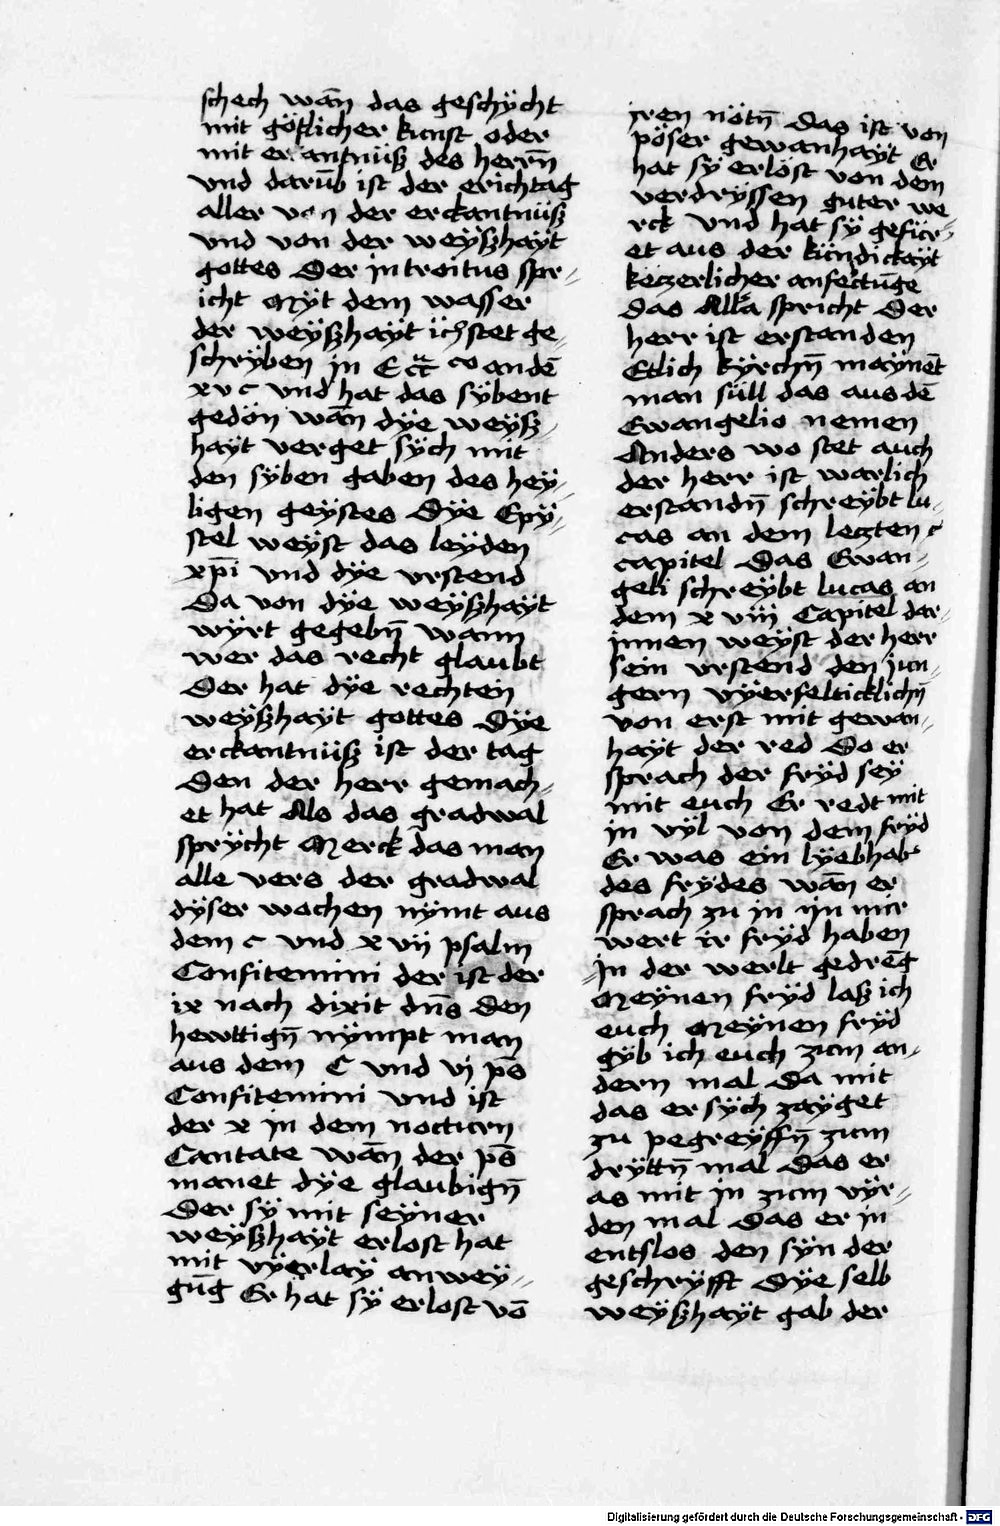 schech wan̄ das geschÿcht
mit götlicher kunst oder
mit er antnüß des herrn̄
vnd darūb ist der erichtag
aller von der erckantnüß
vnd von der weÿßhaÿt
gottes Der introitus spr⸗
icht Mÿt dem wasser
der weÿßhaÿt ist stet ge⸗
schrÿben in andē
xv c vnd hat das sÿbent
gedön wan̄ dÿe weÿß⸗
haÿt verget sÿch mit
den sÿben gaben des heÿ⸗
ligen geÿstes Dÿe Epÿ⸗
stel weÿst das leÿden
xp̄i vnd dÿe vrstend
Da von dÿe weÿßhaÿt
wÿrt gegebn̄ wann
wer das recht glaubt
Der hat dÿe rechten
weÿßhaÿt gottes Dÿe
erckantnüß ist der tag
Den der herr gemach⸗
et hat Als das gradwal
sprÿcht Merck das man
alle vers der gradwal
dÿser wochen nÿmt aus
dem c vnd xvij psalm
Confitemini der ist der
ix nach dixit dn̄s Den
hewttign̄ nÿmpt man
aus dem C vnd vj ps̄
Confitemini vnd ist
der x in dem nocturn
Cantate wan̄ der ps̄
manet dÿe glaubign̄
Der sÿ mit seÿner
weÿßhaÿt erlost hat
mit vÿerlaÿ anweÿ⸗
gūg Er hat sÿ erlost vō
jren nötn̄ Das ist von
pöser gewanhaÿt Er
hat sÿ erlöst von dem
verdrÿssen guter we⸗
rck vnd hat sÿ gefür⸗
et aus der kündickaÿt
keczerlicher anfectūge
das Alla spricht Der
herr ist erstanden
Etlich kÿrchn̄ maÿnēt
man süll das aus dē
Ewangelio nemen
Anders wo stet auch
der herr ist warlich
erstandn̄ schreÿbt lu⸗
cas an dem leczten c
capitel Das Ewan⸗
geli schreÿbt lucas an
dem xviij Capitel dar⸗
jnnen weÿst der herr
sein vrstend den jun⸗
gern vÿerfelticklichn̄
von erst mit gewan⸗
haÿt der red Do er
sprach der frÿd seÿ
mit euch Er redt mit
in vÿl von dem frÿd
Er was ein lÿebhab᾽
des frÿdes wan̄ er
sprach zu in ijn mir
wert ir frÿd haben
In der werlt gedrēg
Meÿnen frÿd laß ich
euch Meÿnen frÿd
gÿb ich euch zum an⸗
dern mal Da mit
das er sÿch zaÿget
zu pegreÿffn̄ zum
drÿttn̄ mal Das er
as mit in zum vÿr⸗
den mal Das er in
entslos den sÿn der
geschrÿfft Dÿe selb
weÿßhaÿt gab der
Digitalisierung gefördert durch die Deutsche Forschungsgemeinschaft - DFG